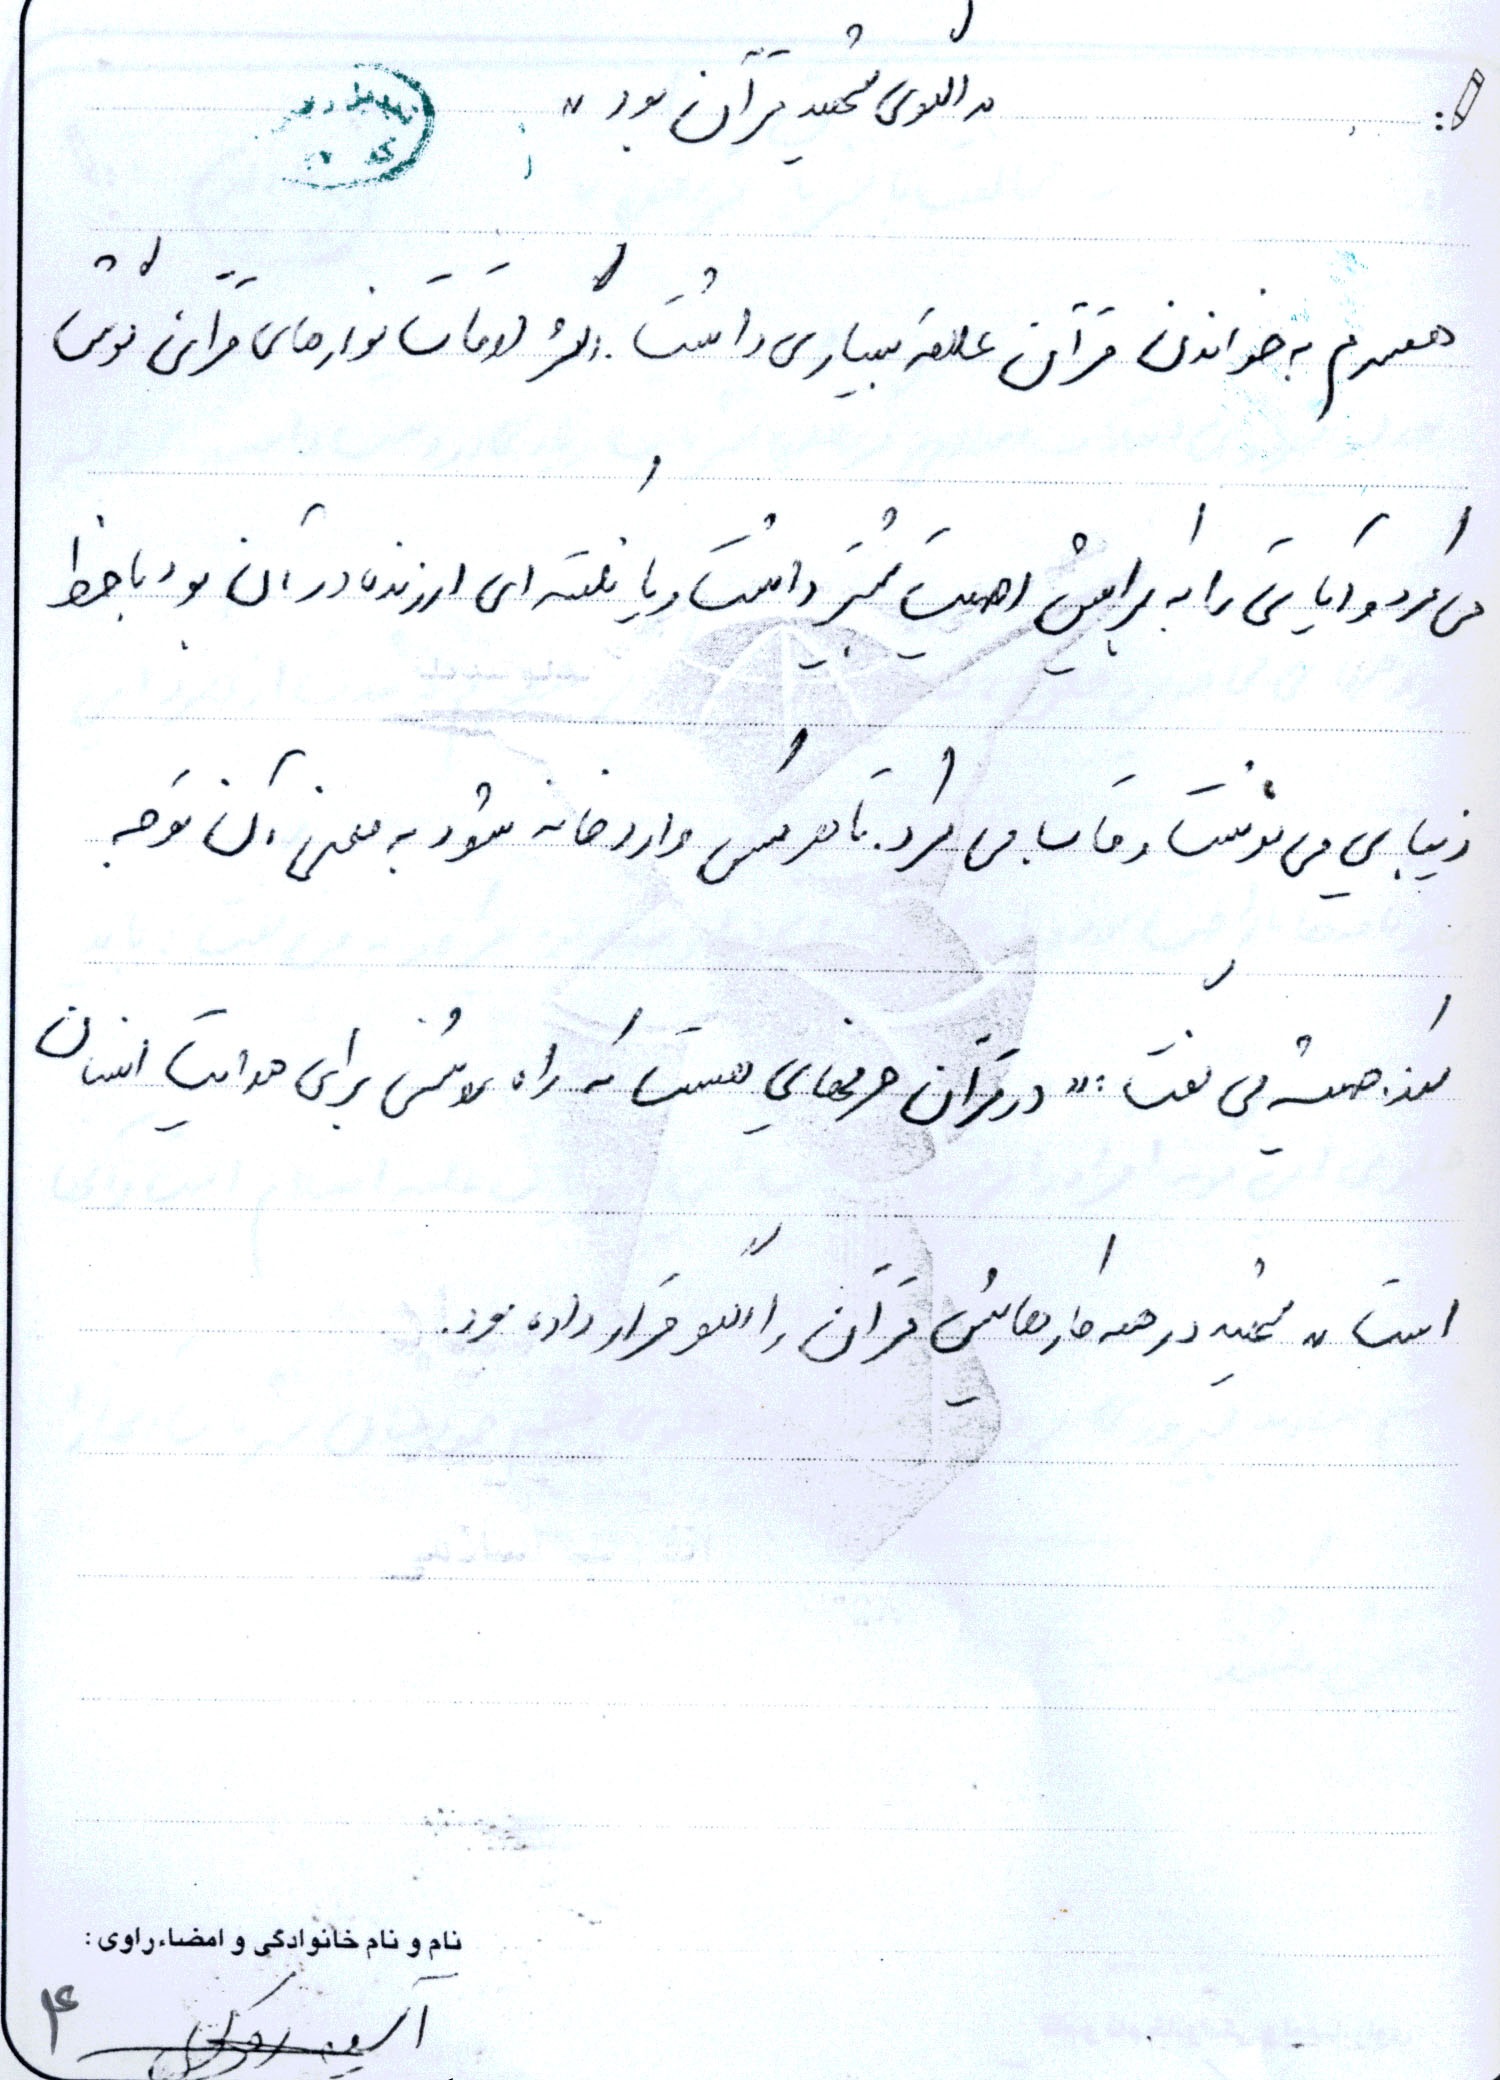 « الگوی شهید قرآن بود »
همسرم به خواندن قرآن علاقه بسیاری داشت. اکثر اوقات نوارهای قرآن گوش
می کرد و آیاتی را که برایش اهمیت بیشتر داشت و یا نکته ای ارزنده در آن بود با خط
زیبایی می نوشت و قاب می کرد. تا هر کس وارد خانه شود به معنی آن توجه
کند. همیشه می گفت: « در قرآن حرفهایی هست که راه روشنی برای هدایت انسان
است » شهید در همه کارهایش قرآن را الگو قرار داده بود.
نام و نام خانوادگی و امضاء راوی:
۴